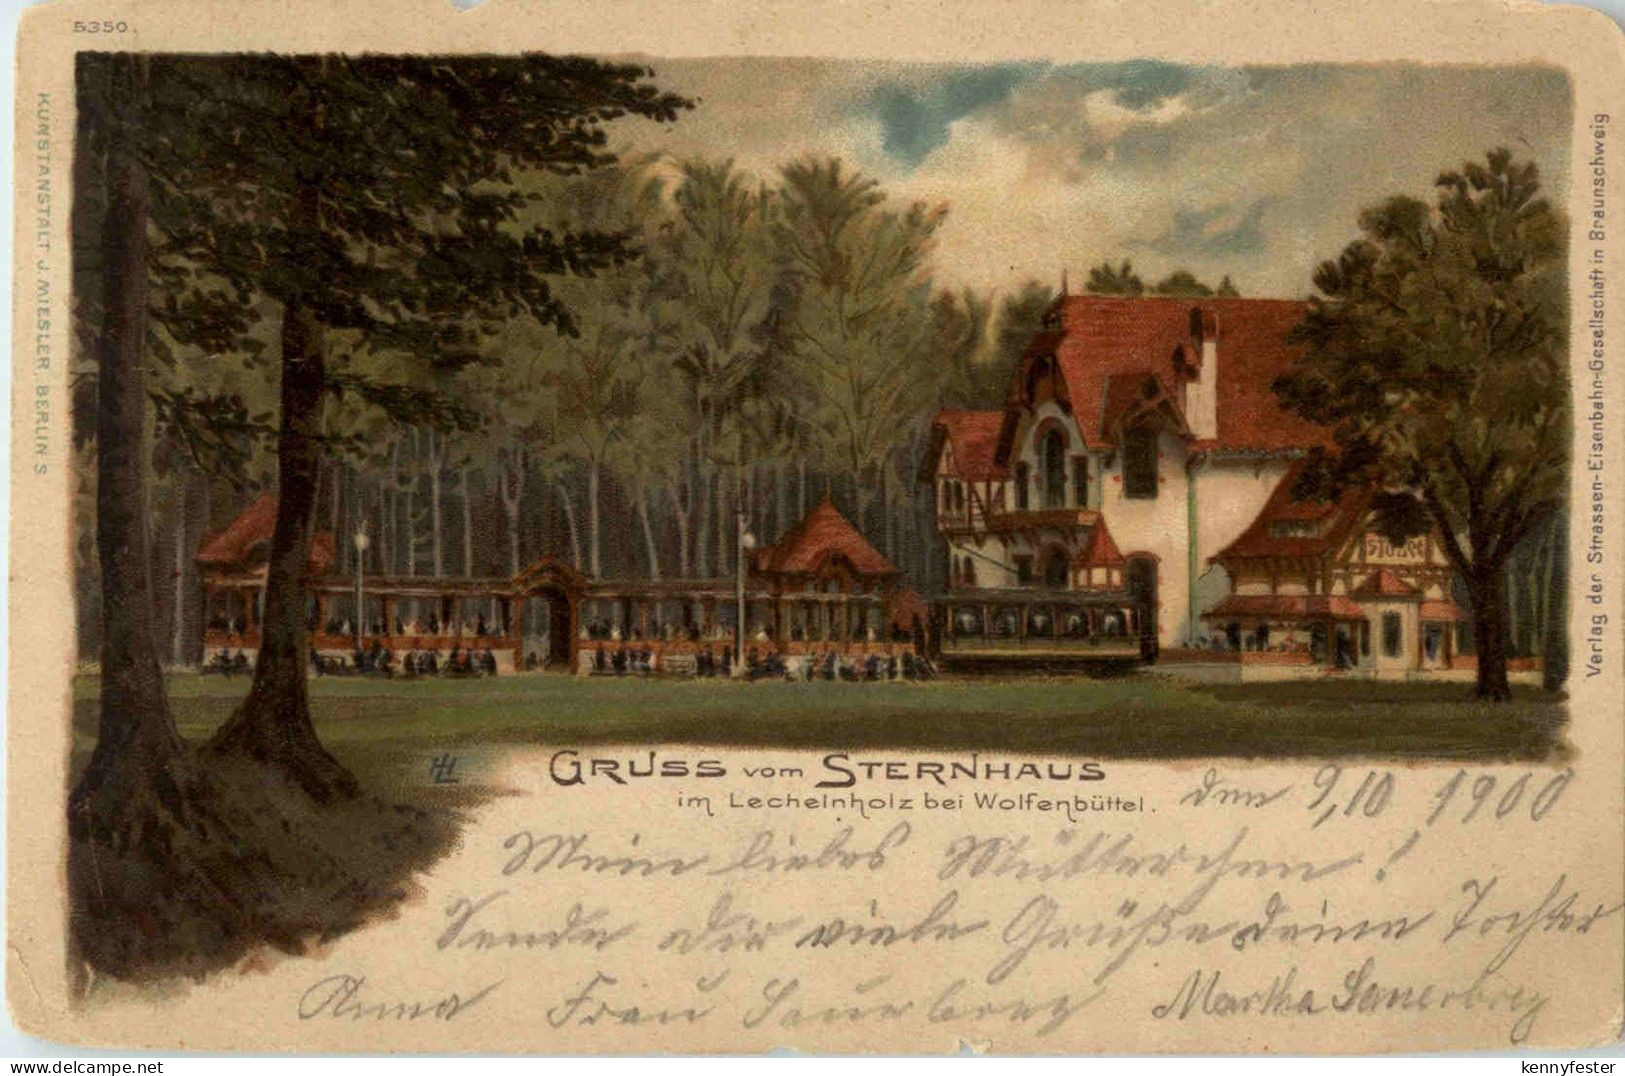 5350.
KUNSTANSTALT J. MIESLER, BERLIN S
Verlag der Strassen-Eisenbahn-Gesellschaft in Braunschweig
HL
GRUSS vom STERNHAUS
im Lechelnholz bei Wolfenbüttel.
den 9,10 1900
Mein liebes Mütterchen!
Sende dir viele Grüße deine Tochter
Anna Frau Sauerberg Martha Sauerbrey
www.delcampe.net
kennyfester